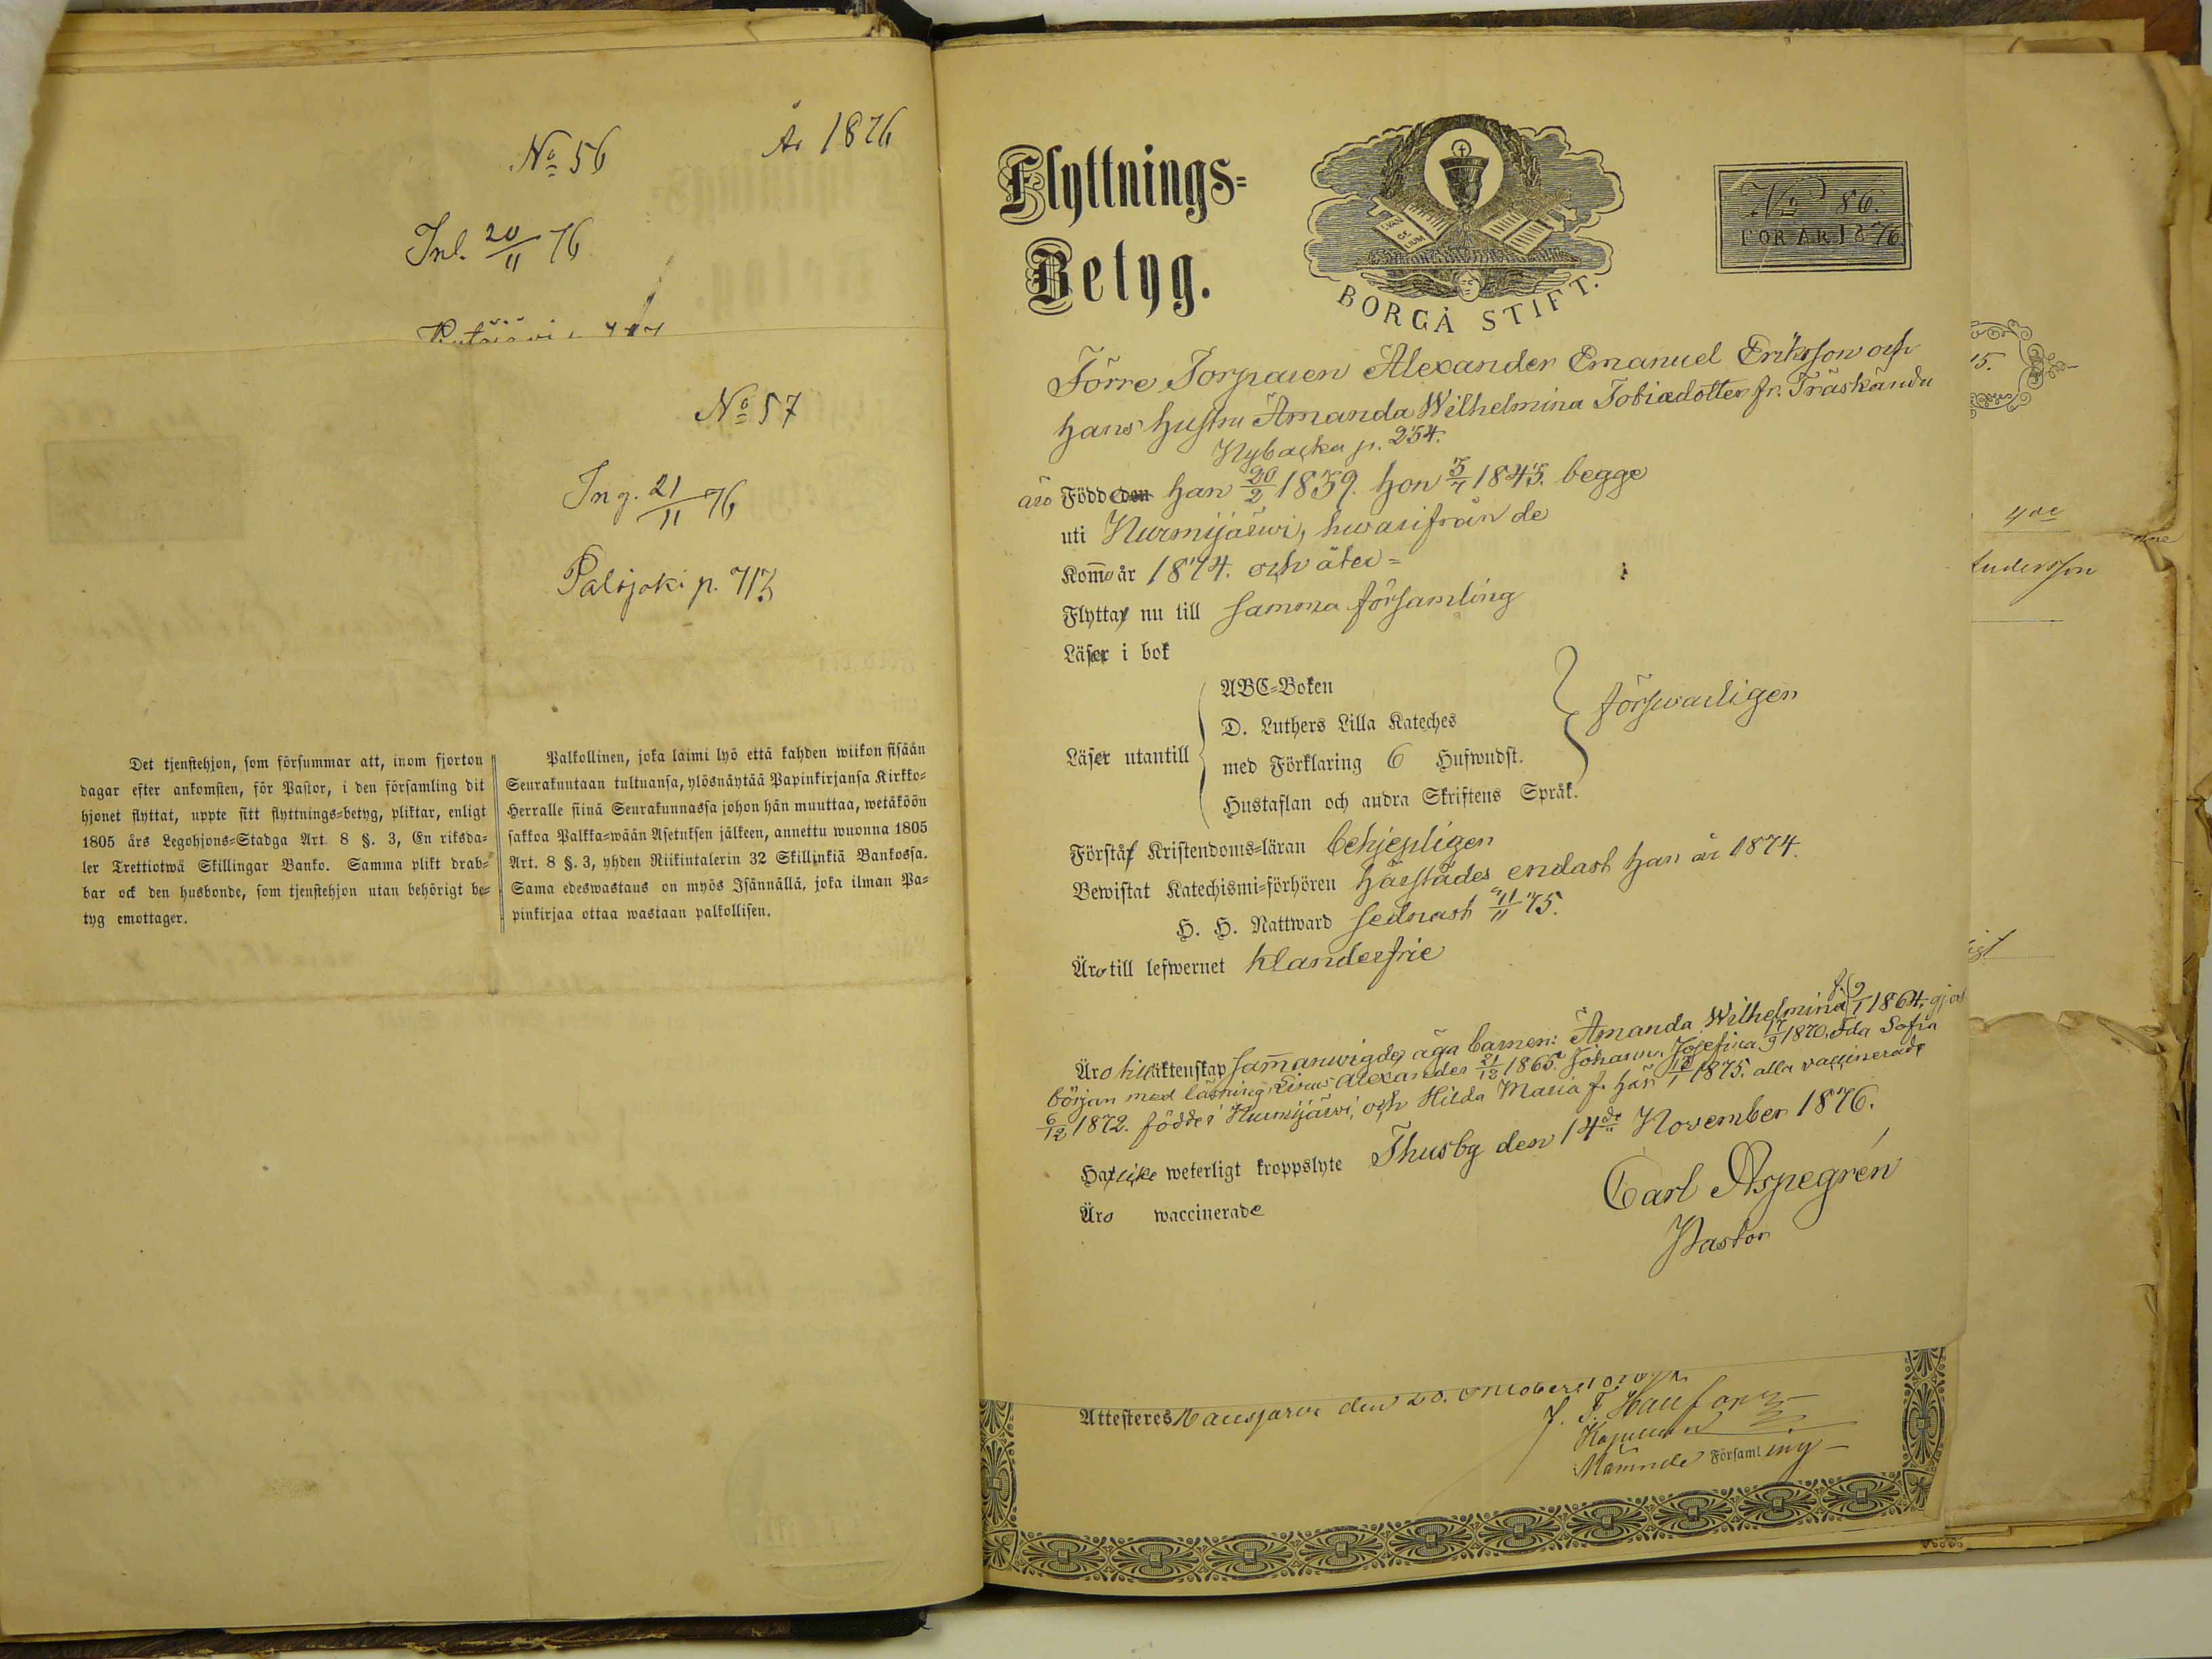 No 56
År 1876
Inl. 20/11 76
No 57
Ing. 21/11 76
Palojoki p. 713
Det tjenstehjon, som försummar att, inom fjorton
dagar efter ankomsten, för Pastor, i den församling dit
hjonet flyttat, uppte sitt flyttnings-betyg, pliktar, enligt
1805 års Legohjons-Stadga Art. 8 §. 3, En riksda-
ler Trettiotwå Skillingar Banko. Samma plikt drab-
bar ock den husbonde, som tjenstehjon utan behörigt be-
tyg emottager.
Palkollinen, joka laimi lyö että kahden wiikon sisään
Seurakuntaan tultuansa, ylösnäytää Papinkirjansa Kirkko-
Herralle siinä Seurakunnassa johon hän muuttaa, wetäköön
sakkoa Palkka-wään Asetuksen jälkeen, annettu wuonna 1805
Art. 8 §. 3, yhden Riikintalerin 32 Skillinkiä Bankossa.
Sama edeswastaus on myös Isännällä, joka ilman Pa-
pinkirjaa ottaa wastaan palkollisen.
Flyttnings-
Betyg.
EVAN
GE
LIUM
BORGÅ STIFT.
No 86.
FÖR ÅR 1876
Förre Torparen Alexander Emanuel Eriksson och
hans hustru Amanda Wilhelmina Tobiædotter fr. Träskända
Nybacka p. 254.
äro Född han 20/2 1839. hon 5/7 1845. begge
uti Nurmijärwi, hwarifrån de
Kommo år 1874. och åter-
Flytta nu till samma församling
Läser i bok
ABC-Boken
D. Luthers Lilla Kateches
Läser utantill
med Förklaring 6 Hufwudst.
Hustaflan och andra Skriftens Språk.
förswarligen
Förstå Kristendoms-läran behjepligen
Bewistat Katechismi-förhören härstädes endast han år 1874.
H. H. Nattward sednast 11/11 75.
Äro till lefwernet klanderfrie
Äro hit äktenskap sammanwigde, äga barnen: Amanda Wilhelmina f. 9/1 1864, gjort
början med läsning, Linus Alexander 21/12 1865. Johanna Josefina 17/9 1870. Ida Sofia
6/12 1872. födde i Nurmijärwi, och Hilda Maria f. här 12/1 1875. alla vaccinerade
Ha icke weterligt kroppslyte Thusby den 14de November 1876.
Äro waccinerade
Carl Aspegrén
Pastor
Attesteres Hausjärvi den 20. Oktober
Församling
15.